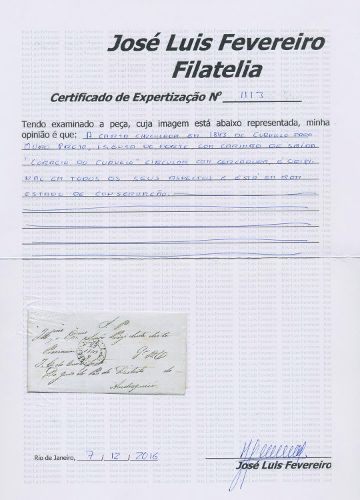 José Luis Fevereiro
Filatelia
Certificado de Expertização Nº 1113
Tendo examinado a peça, cuja imagem está abaixo representada, minha
opinião é que: A CARTA CIRCULADA EM 1843 DE CURVELO PARA
OURO PRETO, ISENTA DE PORTE COM CARIMBO DE SAÍDA
"CORREIO DO CURVELO" CIRCULAR COM CERCADURA, É ORIGI-
NAL EM TODOS OS SEUS ASPECTOS E ESTÁ EM BOM
ESTADO DE CONSERVAÇÃO.
Rio de Janeiro, 7 / 12 / 2016
José Luis Fevereiro